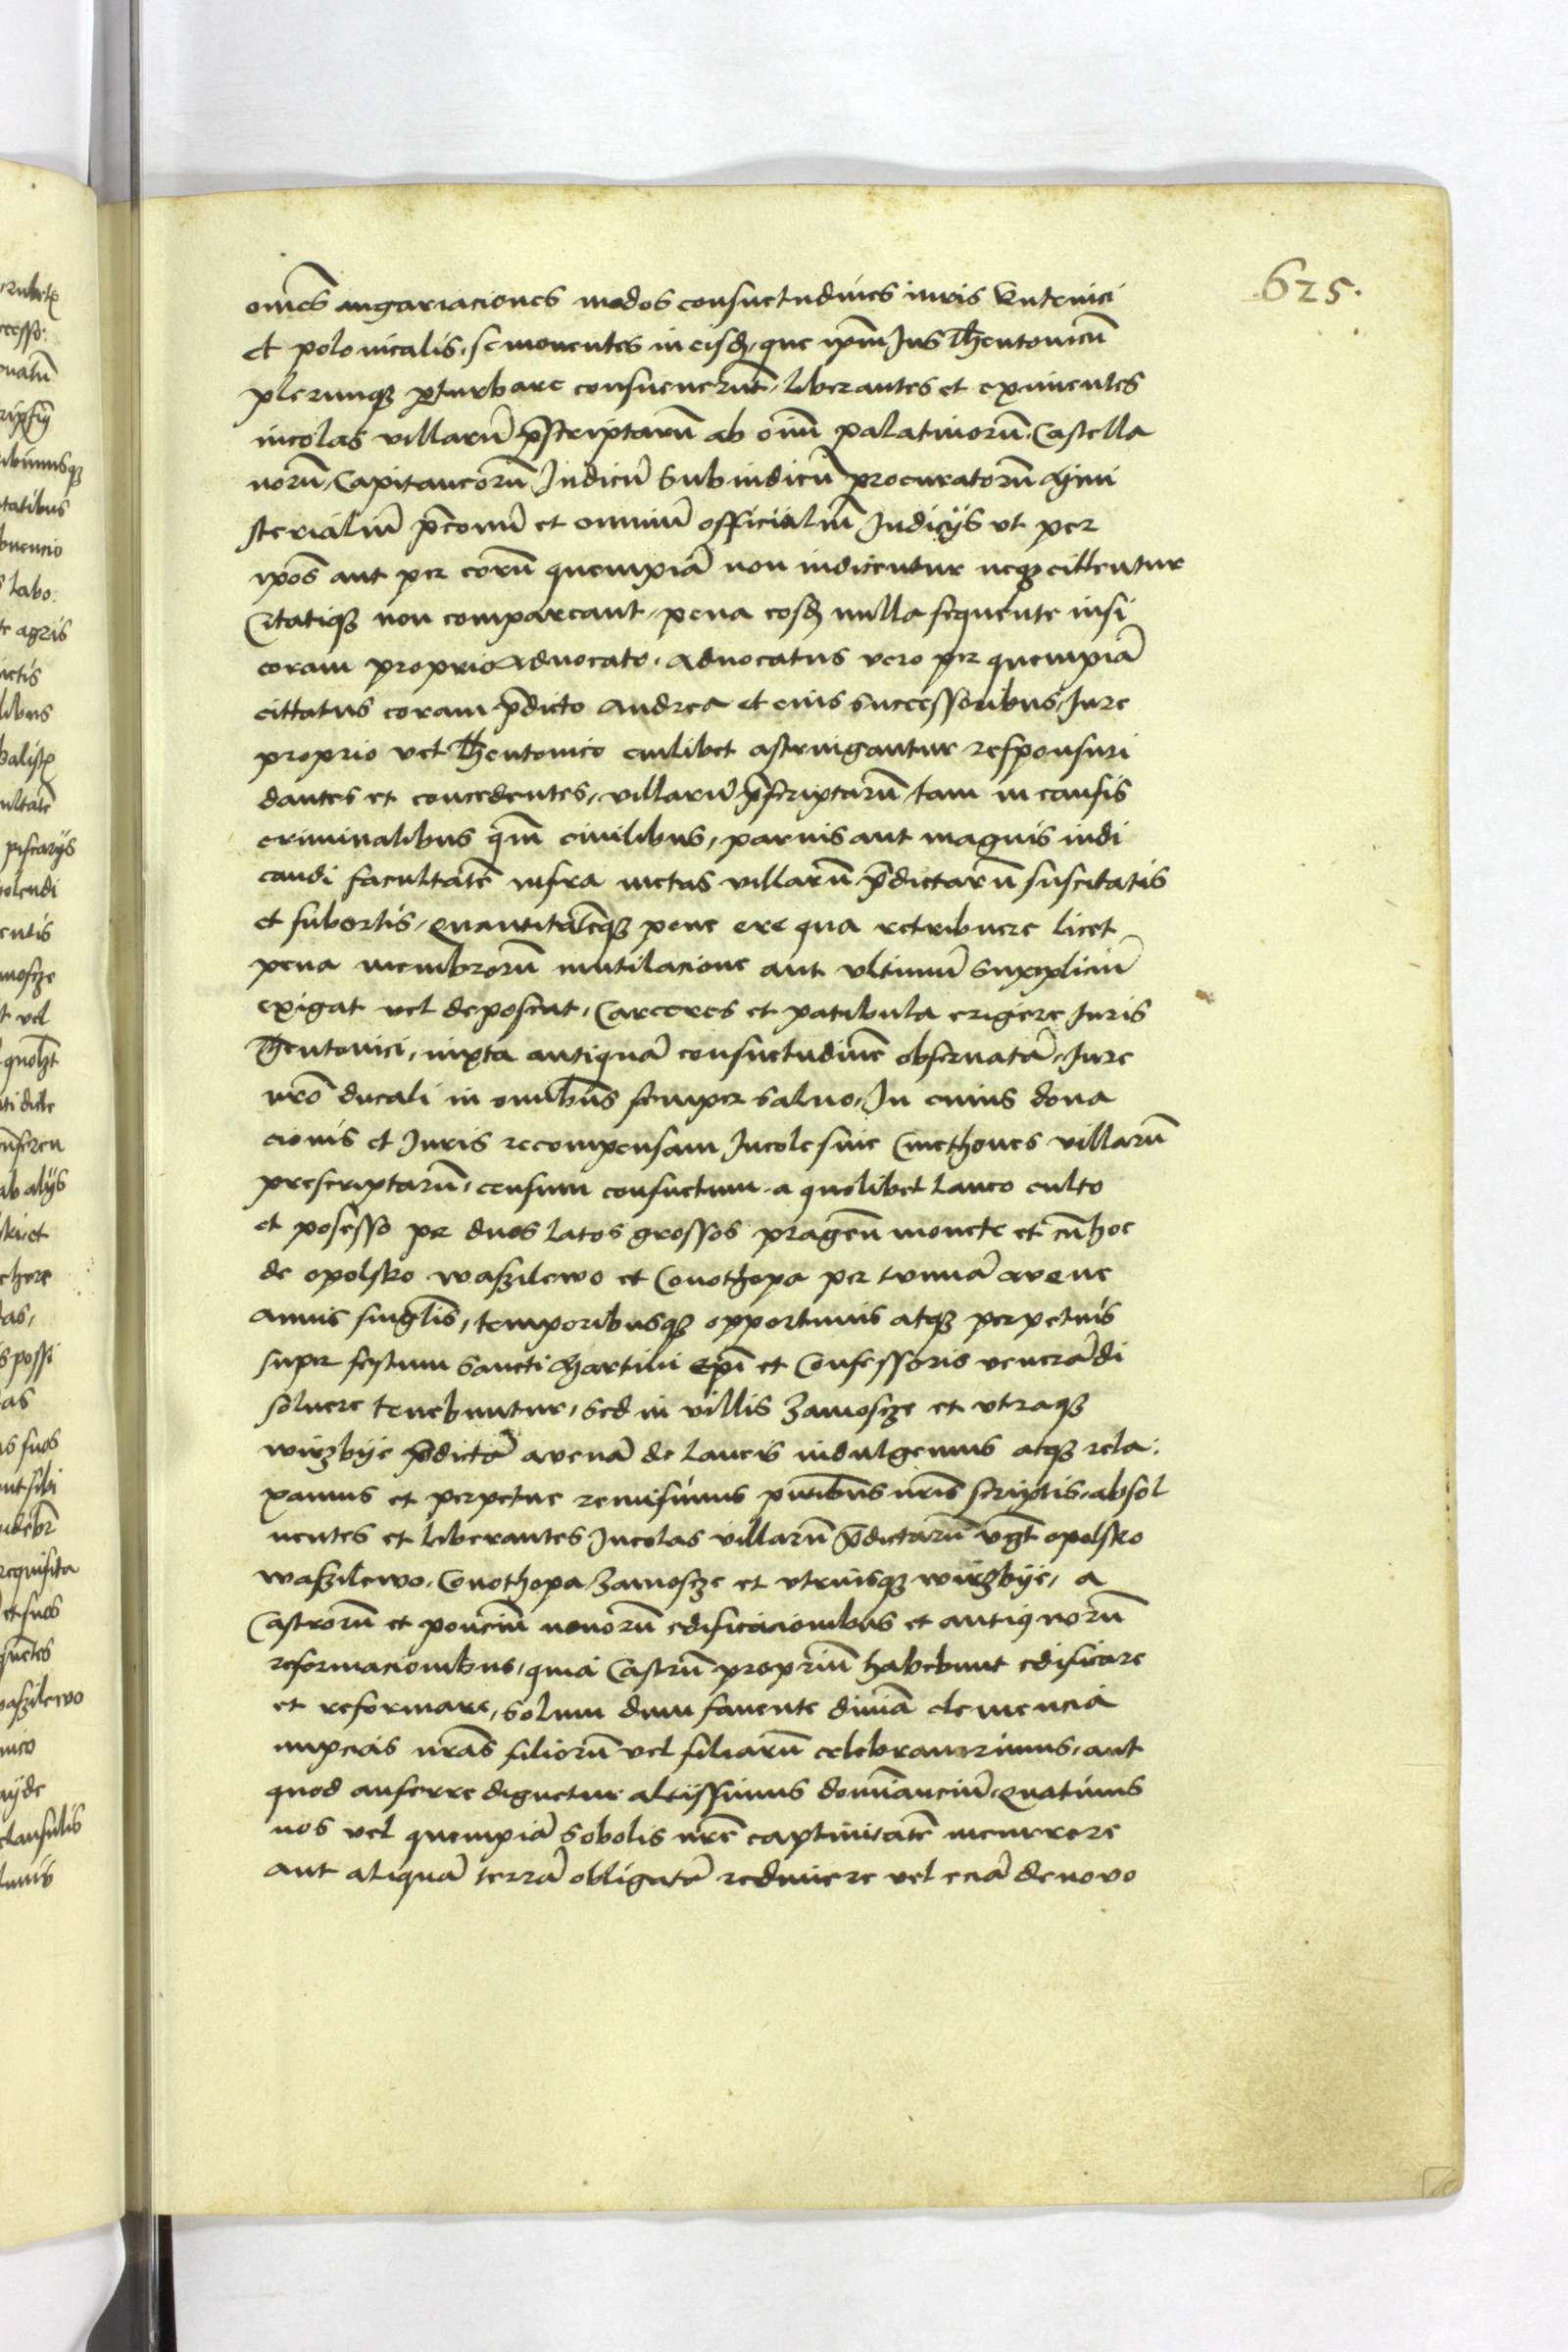 625.
om̄es angariaciones modos consuetudines iuris Rutenici
et polonicalis, semouentes in eisd, que ip̄m Jus Thentonicū
plerunqȝ ꝑturbare consueuerūt, liberantes et eximentes
incolas villarū p̄scriptarū ab oīm palatinorū, Castella
norū, Capitaneorū Judicū Subiudicū procuratorū Mini
sterialiū p̄conū et omniū officialiū Judicijs vt per
ip̄os aut per eorū quempiā non iudicentur neqȝ cittentur
Citatiqȝ non compareant, pena eosd nulla sequente nisi
coram proprio Aduocato. Aduocatus vero per quempiā
cittatus coram p̄dicto Andrea et eius Successoribus, Jure
proprio vet Thentonico cuilibet astringantur responsuri
dantes et concedentes, villarū p̄scriptarū, tam in causis
criminalibus q̄m ciuilibus, paruis aut magnis iudi
candi facultatē infra metas villarū p̄dictarū suscitatis
et subortis, Quantitatēqȝ pene ere qua retribuere licet
pena membrorū mutilacione aut vltimū Suppliciū
exigat vel deposcat, Carceres et patibula erigere Juris
Thentonici, iuxta antiquā consuetudinē obseruatā, Jure
nr̄o ducali in omībus semper saluo, In cuius dona
cionis et Juris recompensam Jncole siue Cmethones villarū
prescriptarū, censum consuetum a quolibet Laneo culto
et posesso per duos Latos grossos pragen̄ monete et cū hoc
de opolsko wasszilewo et Conothopa per tunnā avene
annis singlīs, temporibusqȝ opportunis atqȝ perpetuis
super festum Sancti Martini Ep̄i et Confessoris venerādi
soluere tenebuntur, Sed in villis Zamoscze et vtraqȝ
wirzbije p̄dictā avenā de Laneis indulgemus atqȝ rela
xamus et perpetue remisimus pn̄tibus nr̄is scriptis, absol
uentes et Liberantes Jncolas villarū p̄dictarū vꝫt opolsko
wasszilewo, Conothopa Zamoscze et vtriusqȝ wirzbije, a
Castrorū et ponciū nouorū edificacionibus et antiquorū
reformacionibus, quia Castrū propriū habebunt edificare
et reformare, Solum dum fauente diuīa clemencia
nupcias nr̄as filiorū vel filiarū celebrauerimus, aut
quod auferre dignetur altissimus domīanciū, Quatinus
nos vel quempiā Sobolis nr̄e captiuitatē incurrere
aut aliquā terrā obligatā redimere vel eciā denovo